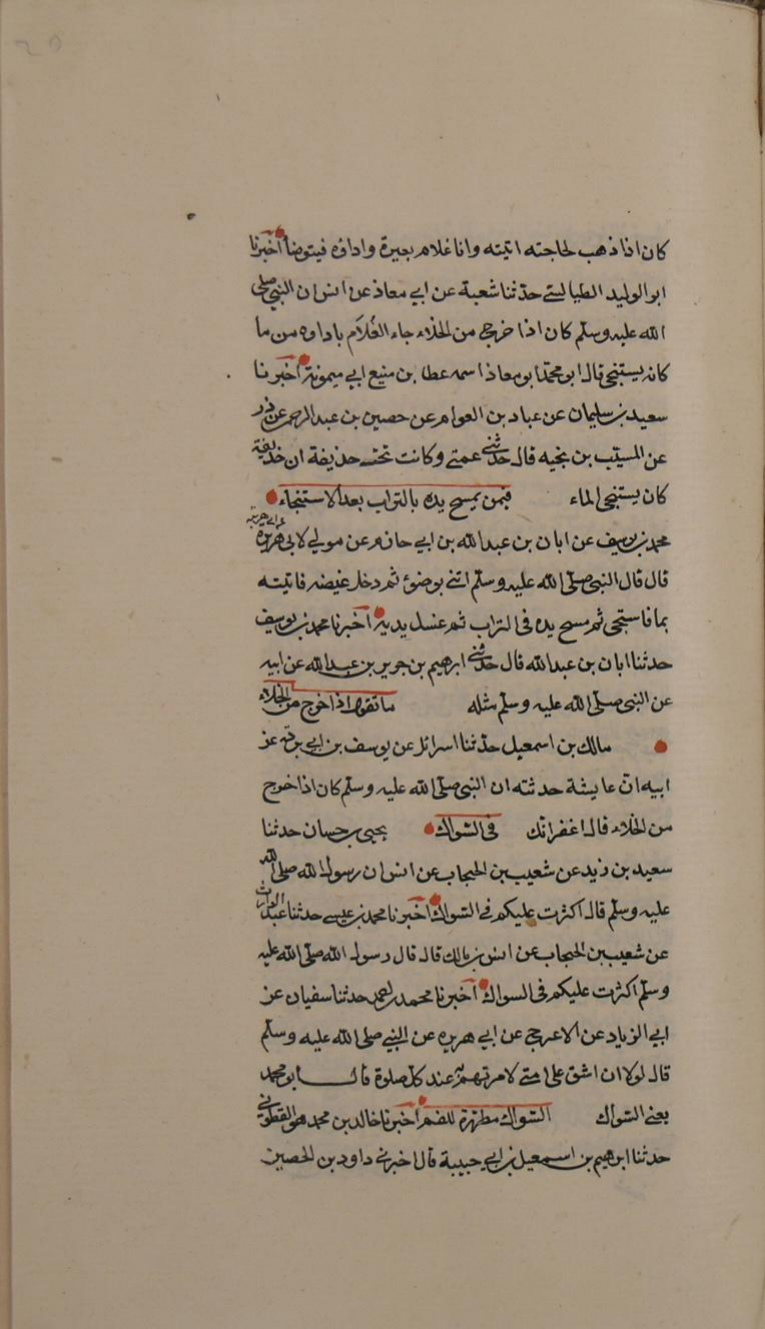 كان اذا ذهب لحاجته اتيته وانا غلام بعيرة واداوه فيتوضأ اخبرنا
ابو الوليد الطيالسي حدثنا شعبة عن ابي معاذ عن انس ان النبي صلى
الله عليه وسلم كان اذا خرج من الخلاء جاء الغلام باداوه من ما
كانه يستنجي قال ابو محمد ابو معاذ اسمه عطا بن منيع ابي ميمونة اخبرنا
سعيد بن سليمان عن عباد بن العوام عن حصين بن عبد الرحمن عن ذر
عن المسيب بن نجيه قال حدثني عمتي وكانت تحت حذيفة ان حذيفة
كان يستنجي الماء فيمن يمسح يده بالتراب بعد الاستنجاء
محمد بن يوسف عن ابان بن عبد الله بن ابي حازم عن مولي لابي هريره عن ابي هريره
قال قال النبي صلى الله عليه وسلم اتني بوضوء ثم دخل غيضه فاتيته
بما فاستنجى ثم مسح يده في التراب ثم غسل يديه اخبرنا محمد بن يوسف
حدثنا ابان بن عبد الله قال حدثني ابرهيم بن جرير بن عبد الله عن ابيه
عن النبي صلى الله عليه وسلم مثله ما تقول اذا خرج من الخلاء
مالك بن اسمعيل حدثنا اسرائل عن يوسف بن ابي برده عن
ابيه ان عايشة حدثته ان النبي صلى الله عليه وسلم كان اذا خرج
من الخلاء قال غفرانك في السواك يحيى بن حسان حدثنا
سعيد بن زيد عن شعيب بن الحبحاب عن انس ان رسول الله صلى الله
عليه وسلم قال اكثرت عليكم في السواك اخبرنا محمد بن عيسى حدثنا عبد الوارث
عن شعيب بن الحبحاب عن انس بن مالك قال قال رسول الله صلى الله عليه
وسلم اكثرت عليكم في السواك اخبرنا محمد بن احمد حدثنا سفيان عن
ابي الزياد عن الاعرج عن ابي هريره عن النبي صلى الله عليه وسلم
قال لولا ان اشق على امتي لامرتهم عند كل صلوة قال ابو محمد
يعني السواك السواك مطهرة للفم اخبرنا خالد بن محمد هو القطوني
حدثنا ابرهيم بن اسمعيل بن ابي حبيبة قال اخبرني داود بن الحصين